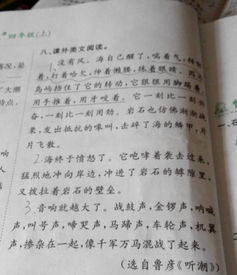 四年级(上)
八、课外美文阅读。
1.没有风。海自己醒了,喘着气,转侧
着,打着哈欠,伸着懒腰,抹着眼睛。因为
岛屿挡住了它的转动,它狠狠用脚踢着,
用手推着,用牙咬着。它一刻比一刻兴
奋,一刻比一刻用劲。岩石也仿佛渐渐战
栗,发出抵抗的嗥叫,击碎了海的鳞甲,片
片飞散。
2.海终于愤怒了。它咆哮着袭击过来,
猛烈地冲向岸边,冲进了岩石的罅隙里,
又拨拉着岩石的壁垒。
3.音响就越大了。战鼓声,金锣声,呐喊
声,叫号声,啼哭声,马蹄声,车轮声,机翼
声,掺杂在一起,像千军万马混战了起来。
(选自鲁彦《听潮》)